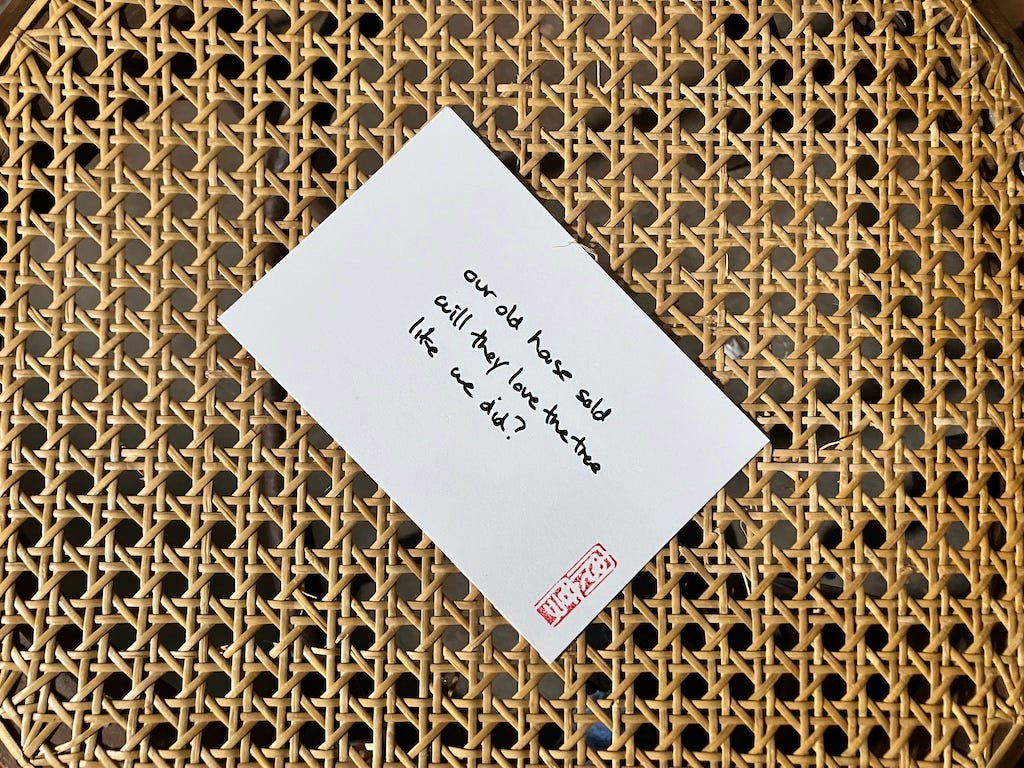 our old house sold
will they love the tree
like we did?